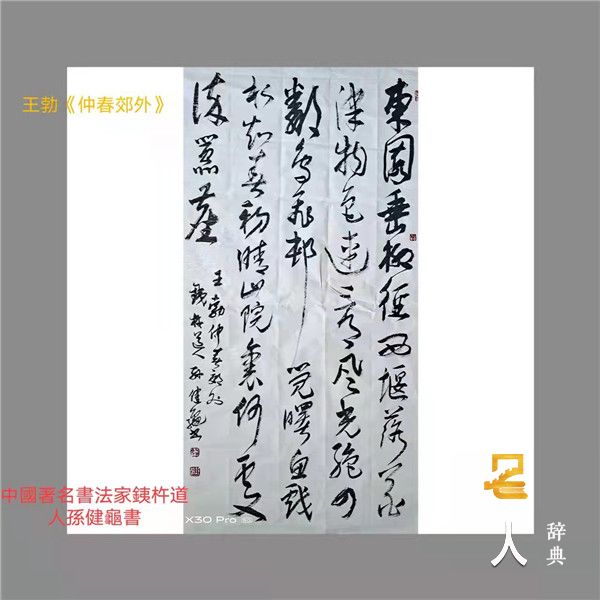 王勃《仲春郊外》
東園垂柳徑西堰落花
津物色連三月風光絶四
鄰鳥飛村覺曙魚戲
水知春初晴山院裏何處
染囂塵
王勃仲春郊外
銕杵道人孫健龜書
中國著名書法家銕杵道
人孫健龜書
X30 Pro
名人
辞典